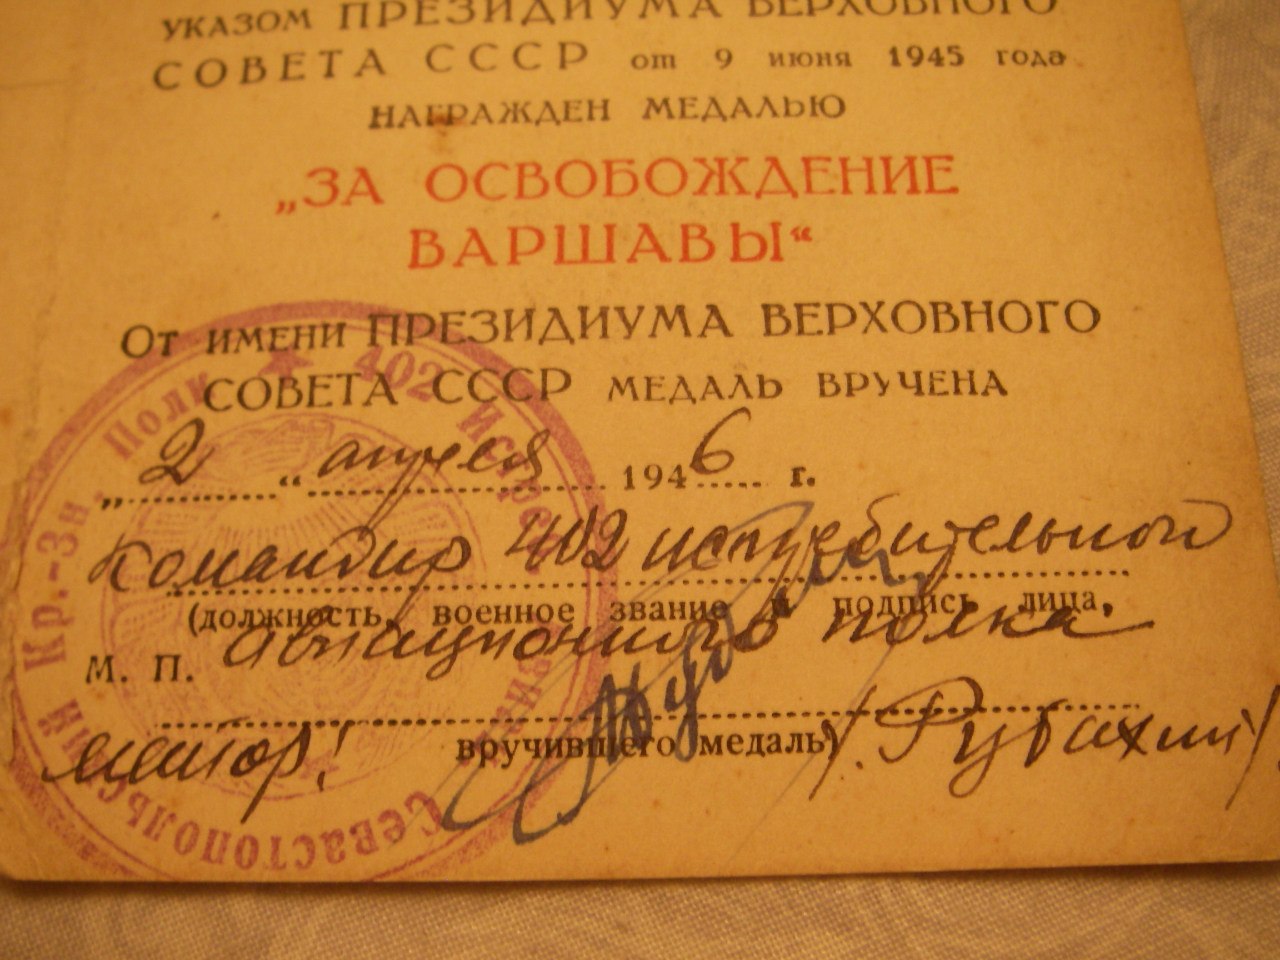 УКАЗОМ ПРЕЗИДИУМА ВЕРХОВНОГО
СОВЕТА СССР от 9 июня 1945 года
НАГРАЖДЕН МЕДАЛЬЮ
„ЗА ОСВОБОЖДЕНИЕ
ВАРШАВЫ“
ОТ ИМЕНИ ПРЕЗИДИУМА ВЕРХОВНОГО
СОВЕТА СССР МЕДАЛЬ ВРУЧЕНА
„2“ апреля 1946 г.
Командир 402 истребительной
(должность, военное звание и подпись лица,
авиационного полка
М. П.
майор!
вручившего медаль)
/Рубахин/
402 Истреб. Авиац. Севастопольский Кр.-Зн. Полк